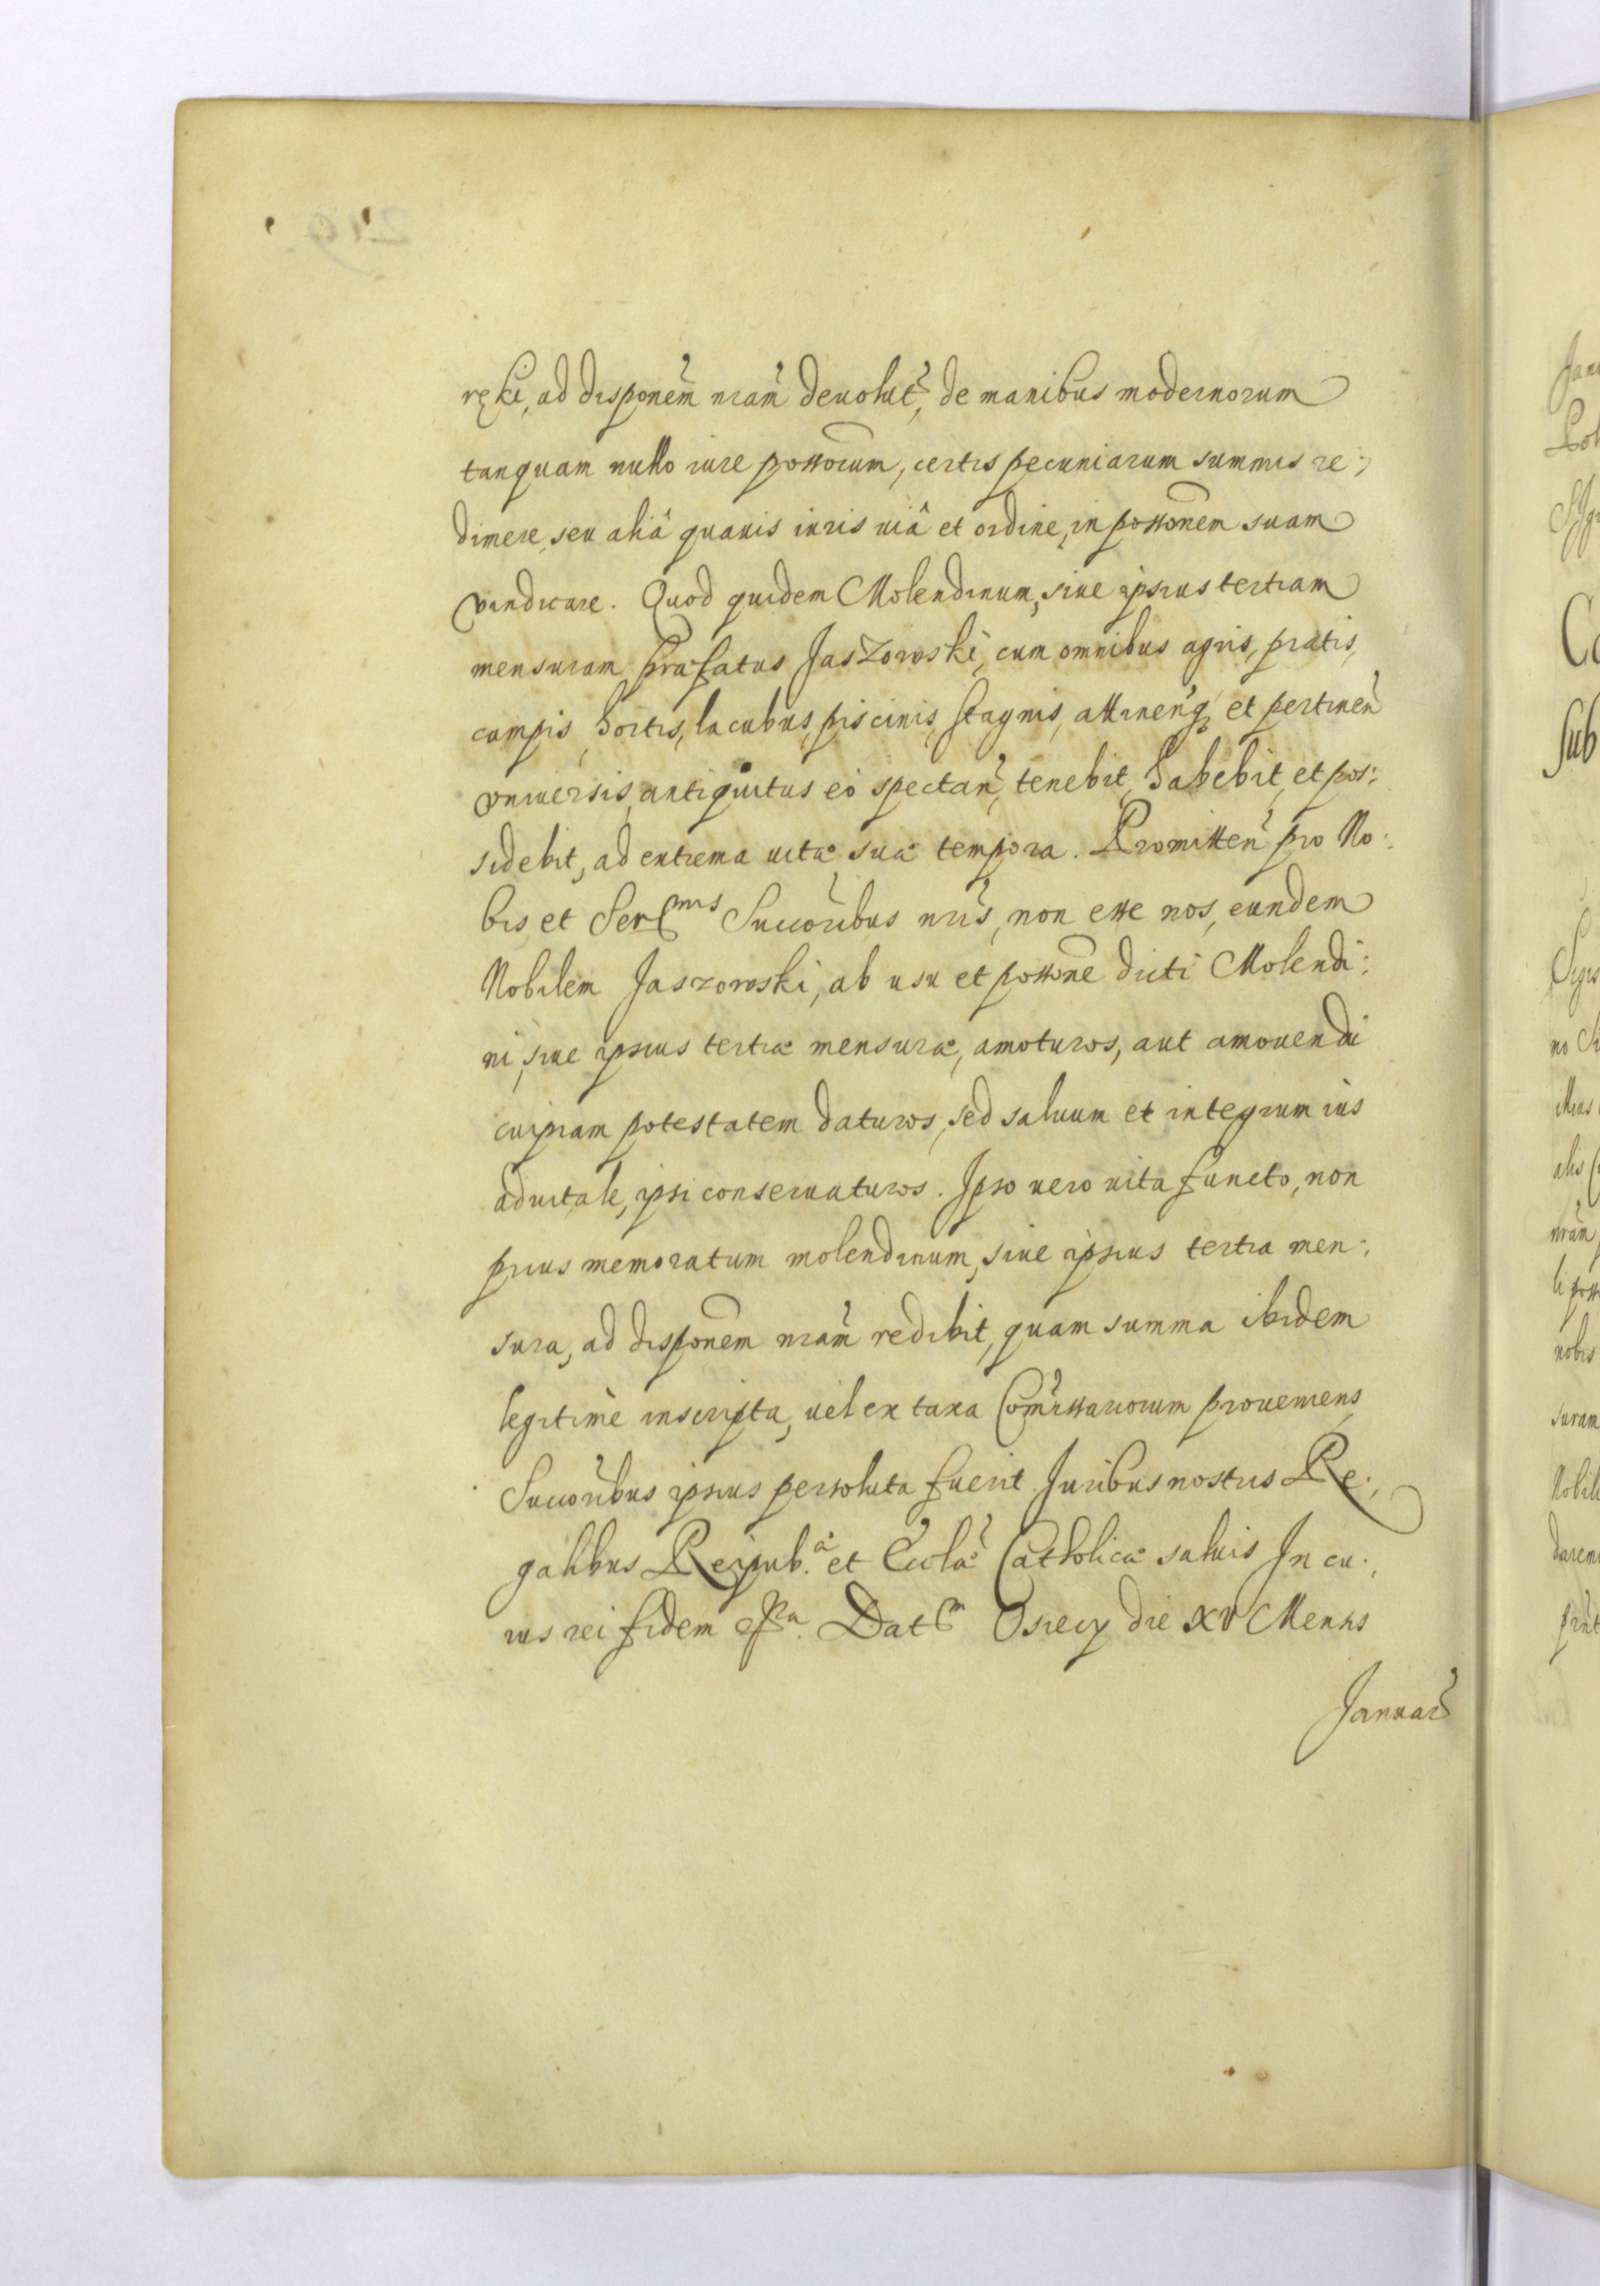 ręki, ad disponẽm nram̃ deuolut̃, de manibus modernorum
tanquam nullo iure possorum, certis pecuniarum summis re:
dimere, seu aliâ quauis iuris uiâ et ordine, in possonem suam
vindicare. Quod quidem Molendinum, siue ipsius tertiam
mensuram præfatus Jaszowski, cum omnibus agris, pratis,
campis, hortis, lacubus, piscinis, stagnis, attineñq et pertineñ
vniuersis, antiquitus eò spectañ, tenebit, habebit, et pos:
sidebit, ad extrema uitæ suæ tempora. Promitteñ pro No:
bis et Ser^mis Succoribus nris, non esse nos, eundem
Nobilem Jaszowski, ab usu et possone dicti Molendi:
ni, siue ipsius tertiæ mensuræ, amoturos, aut amouendi
cuipiam potestatem daturos, sed saluum et integrum ius
aduitale, ipsi conseruaturos. Ipso uero uita functo, non
prius memoratum molendinum, siue ipsius tertia men:
sura, ad disponem nram̃ redibit, quam summa ibidem
legitimè inscripta, uel ex taxa Com̃issariorum proueniens,
Succoribus ipsius persoluta fuerit. Juribus nostris Re:
galibus Reipub.^æ et Ecclæ Catholicæ saluis In cu:
ius rei fidem Dat^m Osiecy die XV Mensis
Januar̃